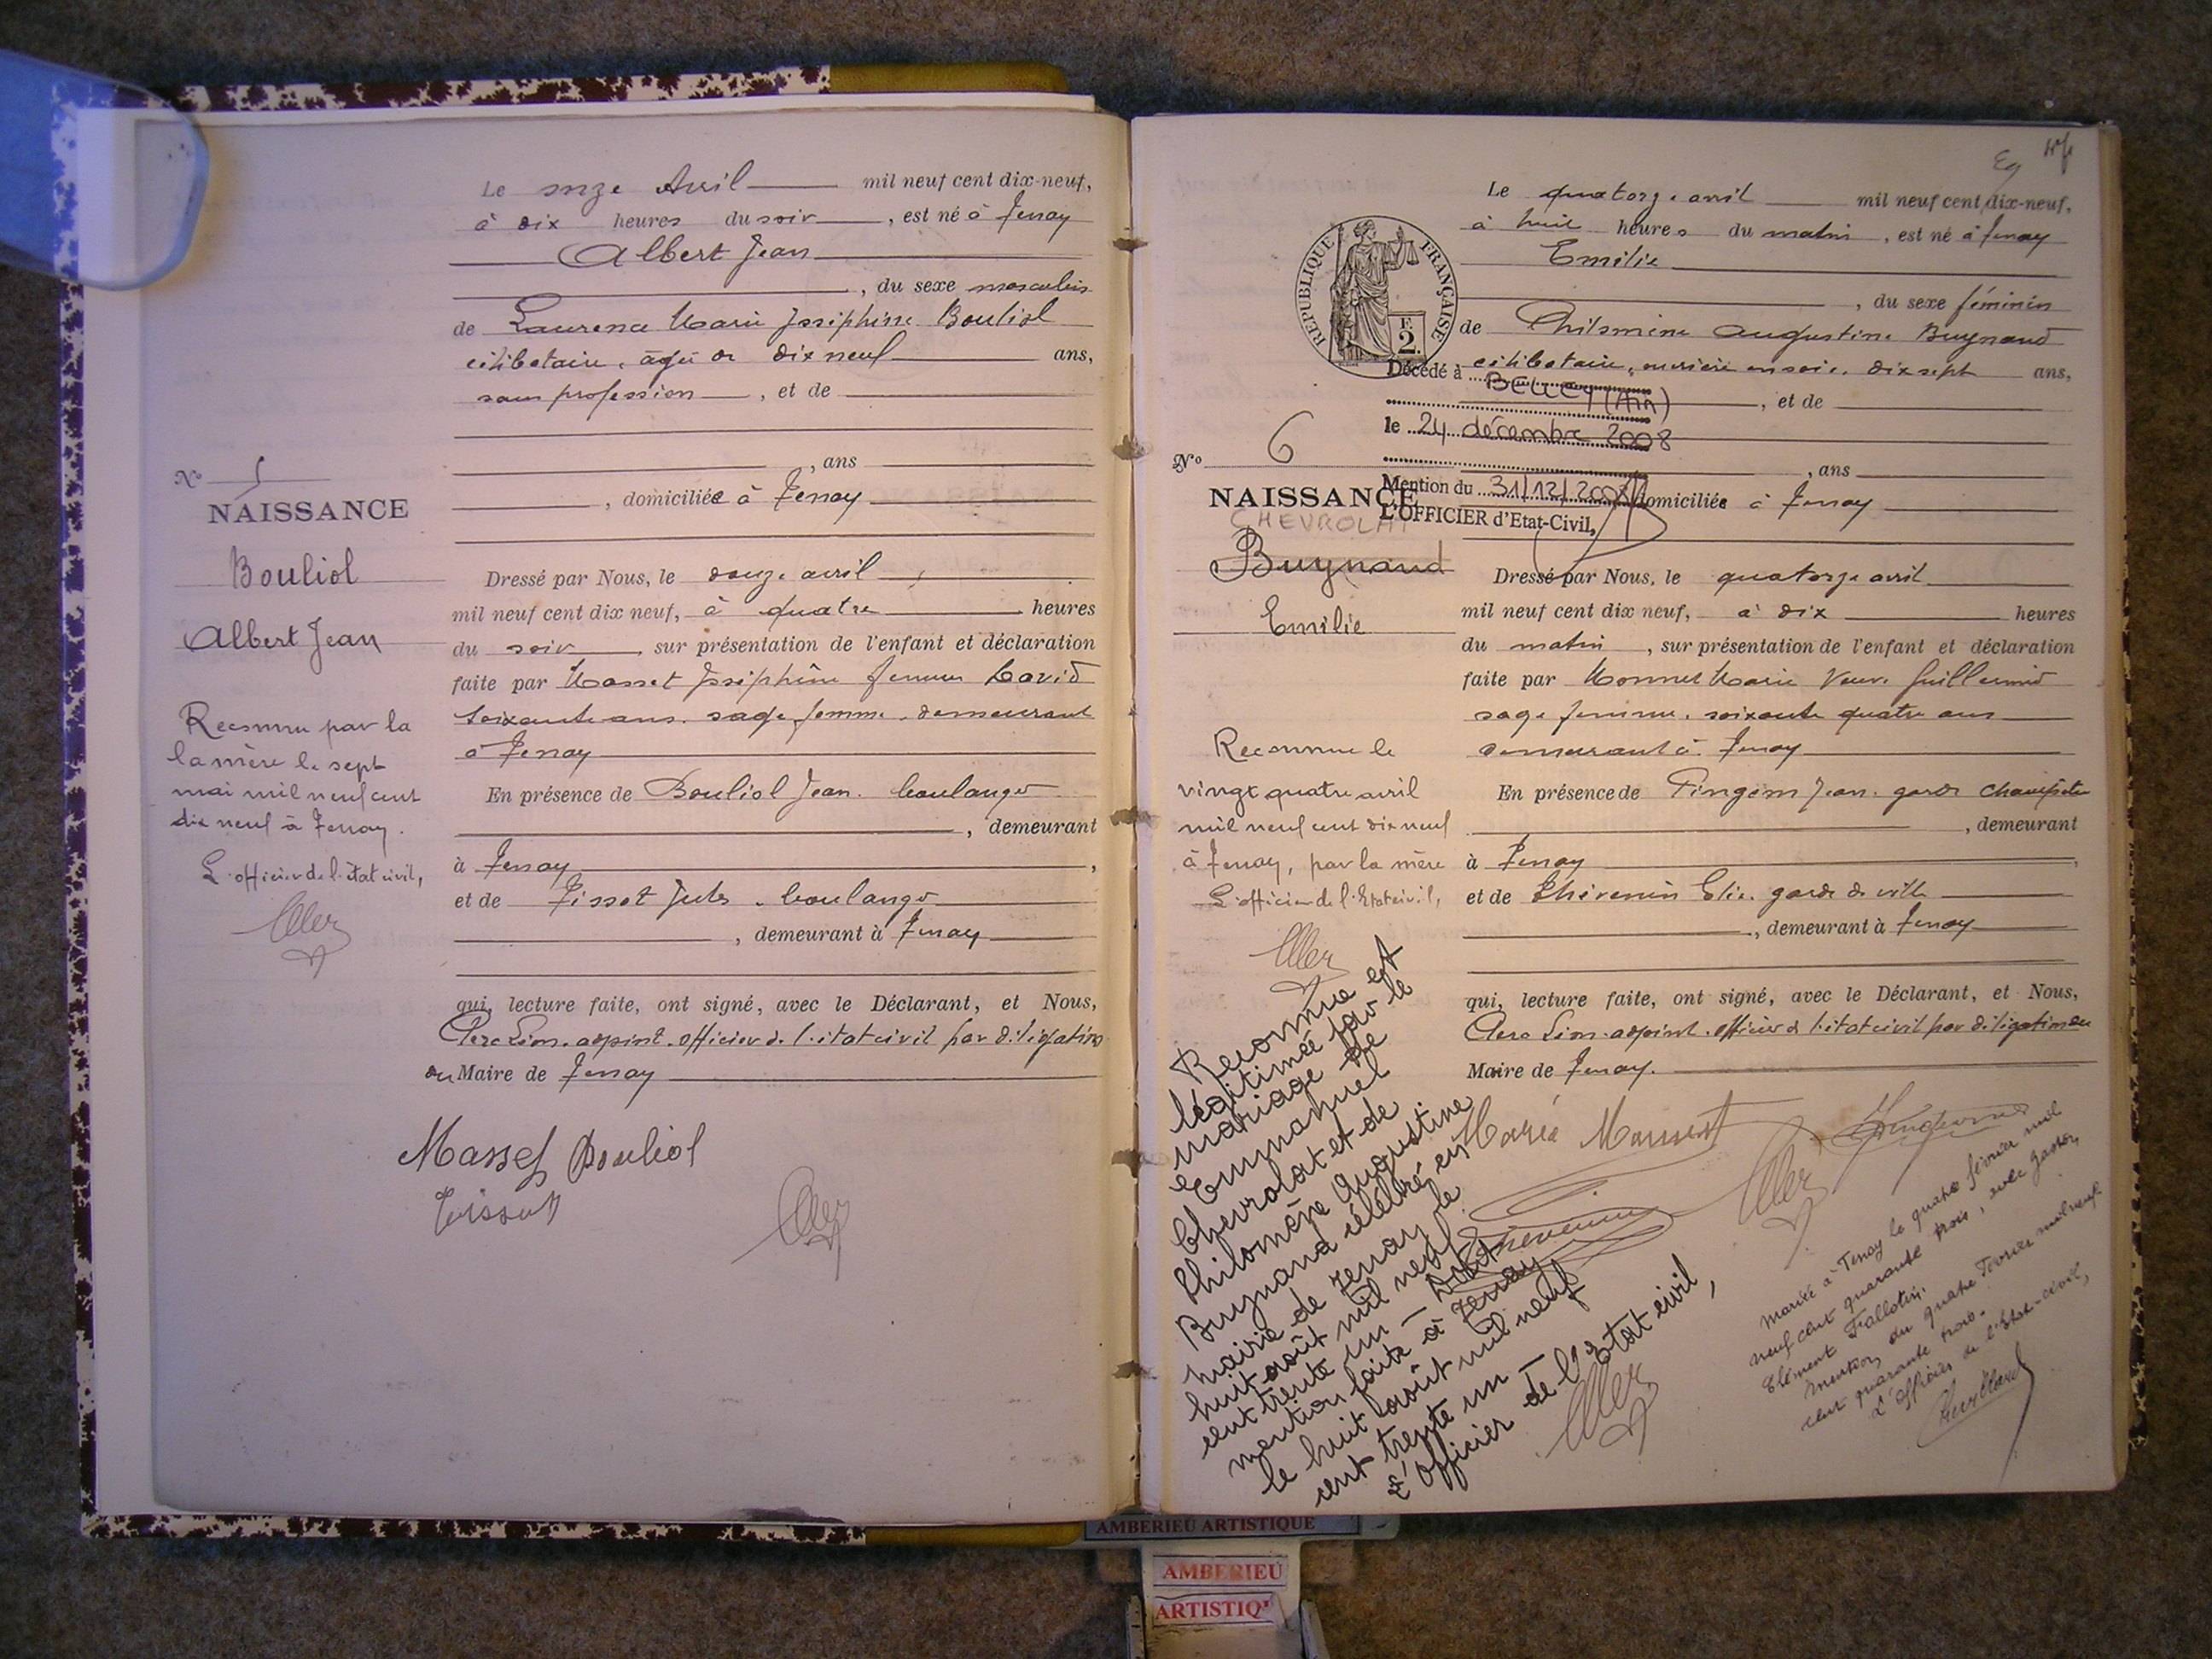 Le onze Avril mil neuf cent dix-neuf,
à dix heures du soir, est né à Tenay
Albert Jean
, du sexe masculin
de Laurence Marie Joséphine Bouliol
célibataire, âgée de dix neuf ans,
sans profession, et de
, ans
, domiciliée à Tenay
N° 5
NAISSANCE
Bouliol
Albert Jean
Reconnu par la
la mère le sept
mai mil neuf cent
dix neuf à Tenay.
L'officier de l'état civil,
Dressé par Nous, le douze avril,
mil neuf cent dix neuf, à quatre heures
du soir, sur présentation de l'enfant et déclaration
faite par Masset Joséphine femme David
soixante ans. sage femme. demeurant
à Tenay
En présence de Bouliol Jean. boulanger
, demeurant
à Tenay,
et de Tissot Jules. boulanger
, demeurant à Tenay
qui, lecture faite, ont signé, avec le Déclarant, et Nous,
Clerc Léon. adjoint. officier de l'état civil par délégation
du Maire de Tenay
Masset Bouliol
Tissot
Le quatorze avril mil neuf cent dix-neuf,
à huit heures du matin, est né à Tenay
Emilie
, du sexe féminin
de Philomène Augustine Buynand
célibataire, ouvrière en soie. dix sept ans,
, et de
, ans
domiciliée à Tenay
REPUBLIQUE FRANÇAISE
F.
2.
Décédé à BELLEY (Ain)
le 24 décembre 2008
Mention du 31/12/2008
L'OFFICIER d'Etat-Civil,
N° 6
NAISSANCE
CHEVROLAT
Buynand
Emilie
Reconnue le
vingt quatre avril
mil neuf cent dix neuf
à Tenay, par la mère
L'officier de l'Etat civil,
Dressé par Nous, le quatorze avril
mil neuf cent dix neuf, à dix heures
du matin, sur présentation de l'enfant et déclaration
faite par Monnet Marie Veuve Guillermid
sage femme. soixante quatre ans
demeurant à Tenay
En présence de Pingeon Jean. garde champêtre
, demeurant
à Tenay,
et de Thévenin Elie. garde de ville
, demeurant à Tenay
qui, lecture faite, ont signé, avec le Déclarant, et Nous,
Clerc Léon. adjoint. officier de l'état civil par délégation du
Maire de Tenay.
Marie Monnet
Pingeon
Thévenin
Reconnue et
légitimée par le
mariage de
Emmanuel
Chevrolat et de
Philomène Augustine
Buynand célébré en
mairie de Tenay le
huit août mil neuf
cent trente un - Dont
mention faite à Tenay
le huit août mil neuf
cent trente un -
L'Officier de l'Etat civil,
Mariée à Tenay le quatre février mil
neuf cent quarante trois, avec Gaston,
Clément Fallotin.
Mention du quatre Février mil neuf
cent quarante trois.
L'Officier de l'Etat-civil,
AMBERIEU ARTISTIQUE
AMBERIEU
ARTISTIQ